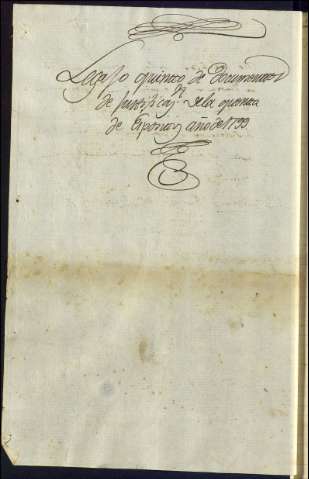 Legajo quinto de Documentos
de Justificaⁿ de la quenta
de Expositos año de 1799